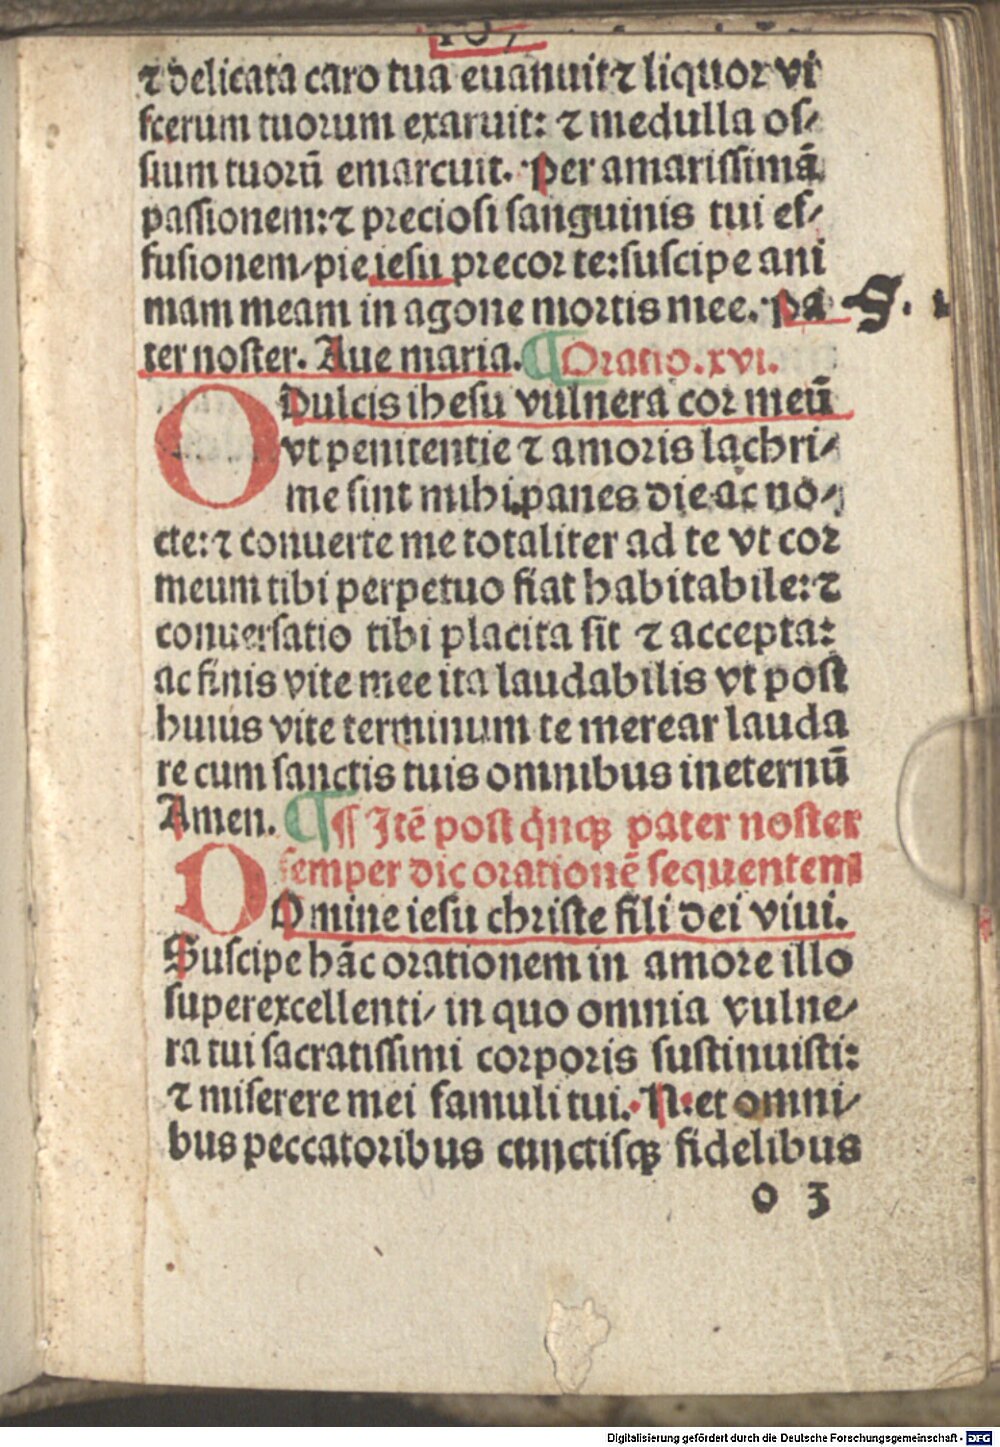 ⁊ delicata caro tua euanuit ⁊ liquor vi
scerum tuorum exaruit: ⁊ medulla os⸗
sium tuorū emarcuit. Per amarissimā
passionem: ⁊ preciosi sanguinis tui ef⸗
fusionem/ pie iesu precor te: suscipe ani
mam meam in agone mortis mee. Pa
ter noster. Aue maria. ¶ Oratio. xvi.
O Dulcis ihesu vulnera cor meū
vt penitentie ⁊ amoris lachri⸗
me sint mihi panes die ac no⸗
cte: ⁊ conuerte me totaliter ad te vt cor
meum tibi perpetuo fiat habitabile: ⁊
conuersatio tibi placita sit ⁊ accepta:
ac finis vite mee ita laudabilis vt post
huius vite terminum te merear lauda
re cum sanctis tuis omnibus in eternū
Amen. ¶ ¶ Itē post q̇nqꝫ pater noster
semper dic orationē sequentem
DOmine iesu christe fili dei viui.
Suscipe hāc orationem in amore illo
superexcellenti/ in quo omnia vulne⸗
ra tui sacratissimi corporis sustinuisti:
⁊ miserere mei famuli tui. N. et omni⸗
bus peccatoribus cunctisqꝫ fidelibus
o 3
Digitalisierung gefördert durch die Deutsche Forschungsgemeinschaft - DFG